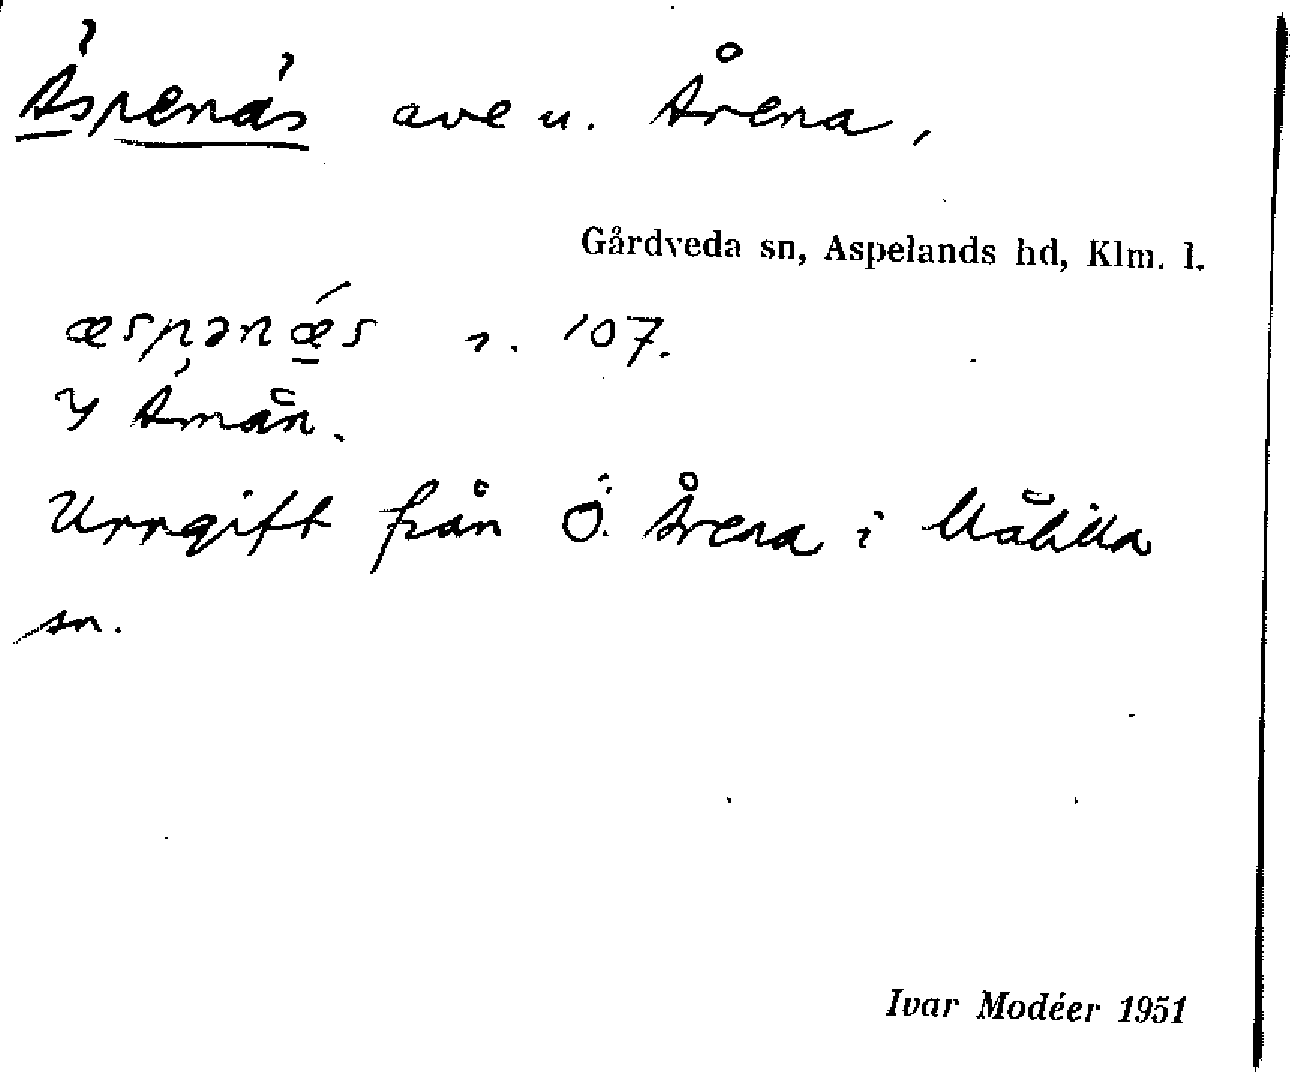 Äspenäs ave u. Årena,
Gårdveda sn, Aspelands hd, Klm. l.
æspənǽs n. 107.
Y Åmån.
Uppgift från Ö. Årena i Målilla
sn.
Ivar Modéer 1951